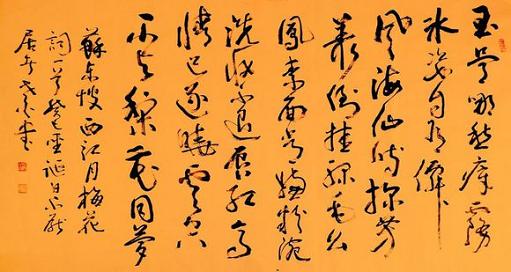 玉骨哪愁瘴霧
冰姿自有僊
風海仙時探芳
叢倒挂綠毛幺
鳳素面常嫌粉涴
洗妝不退唇紅高
情已逐曉雲空
不與梨花同夢
蘇東坡西江月梅花
詞一首癸巳聖誕日
居書